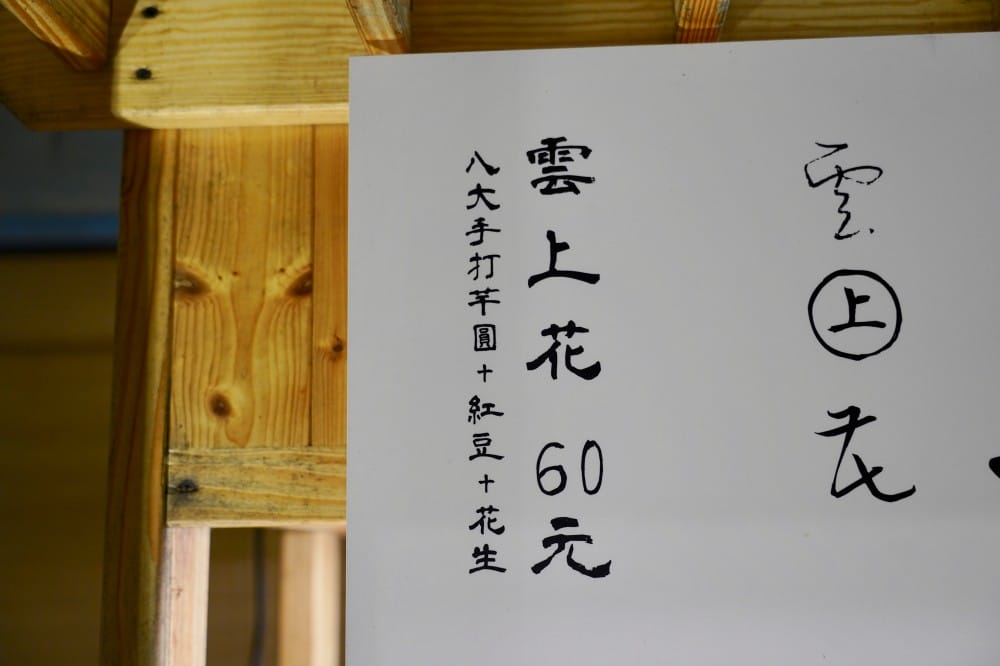 雲上花
雲上花 60元
八大手打芊圓+紅豆+花生